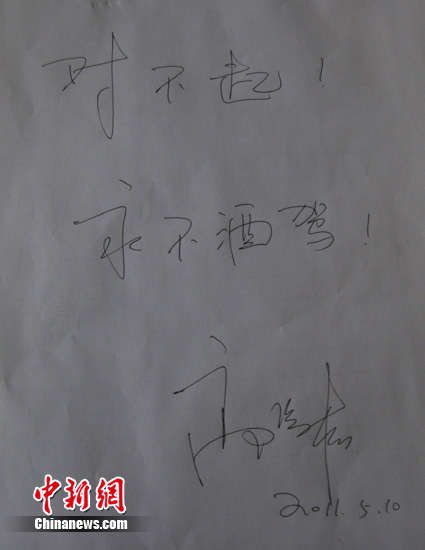 对不起！
永不酒驾！
高晓松
2011.5.10
中新网
Chinanews.com